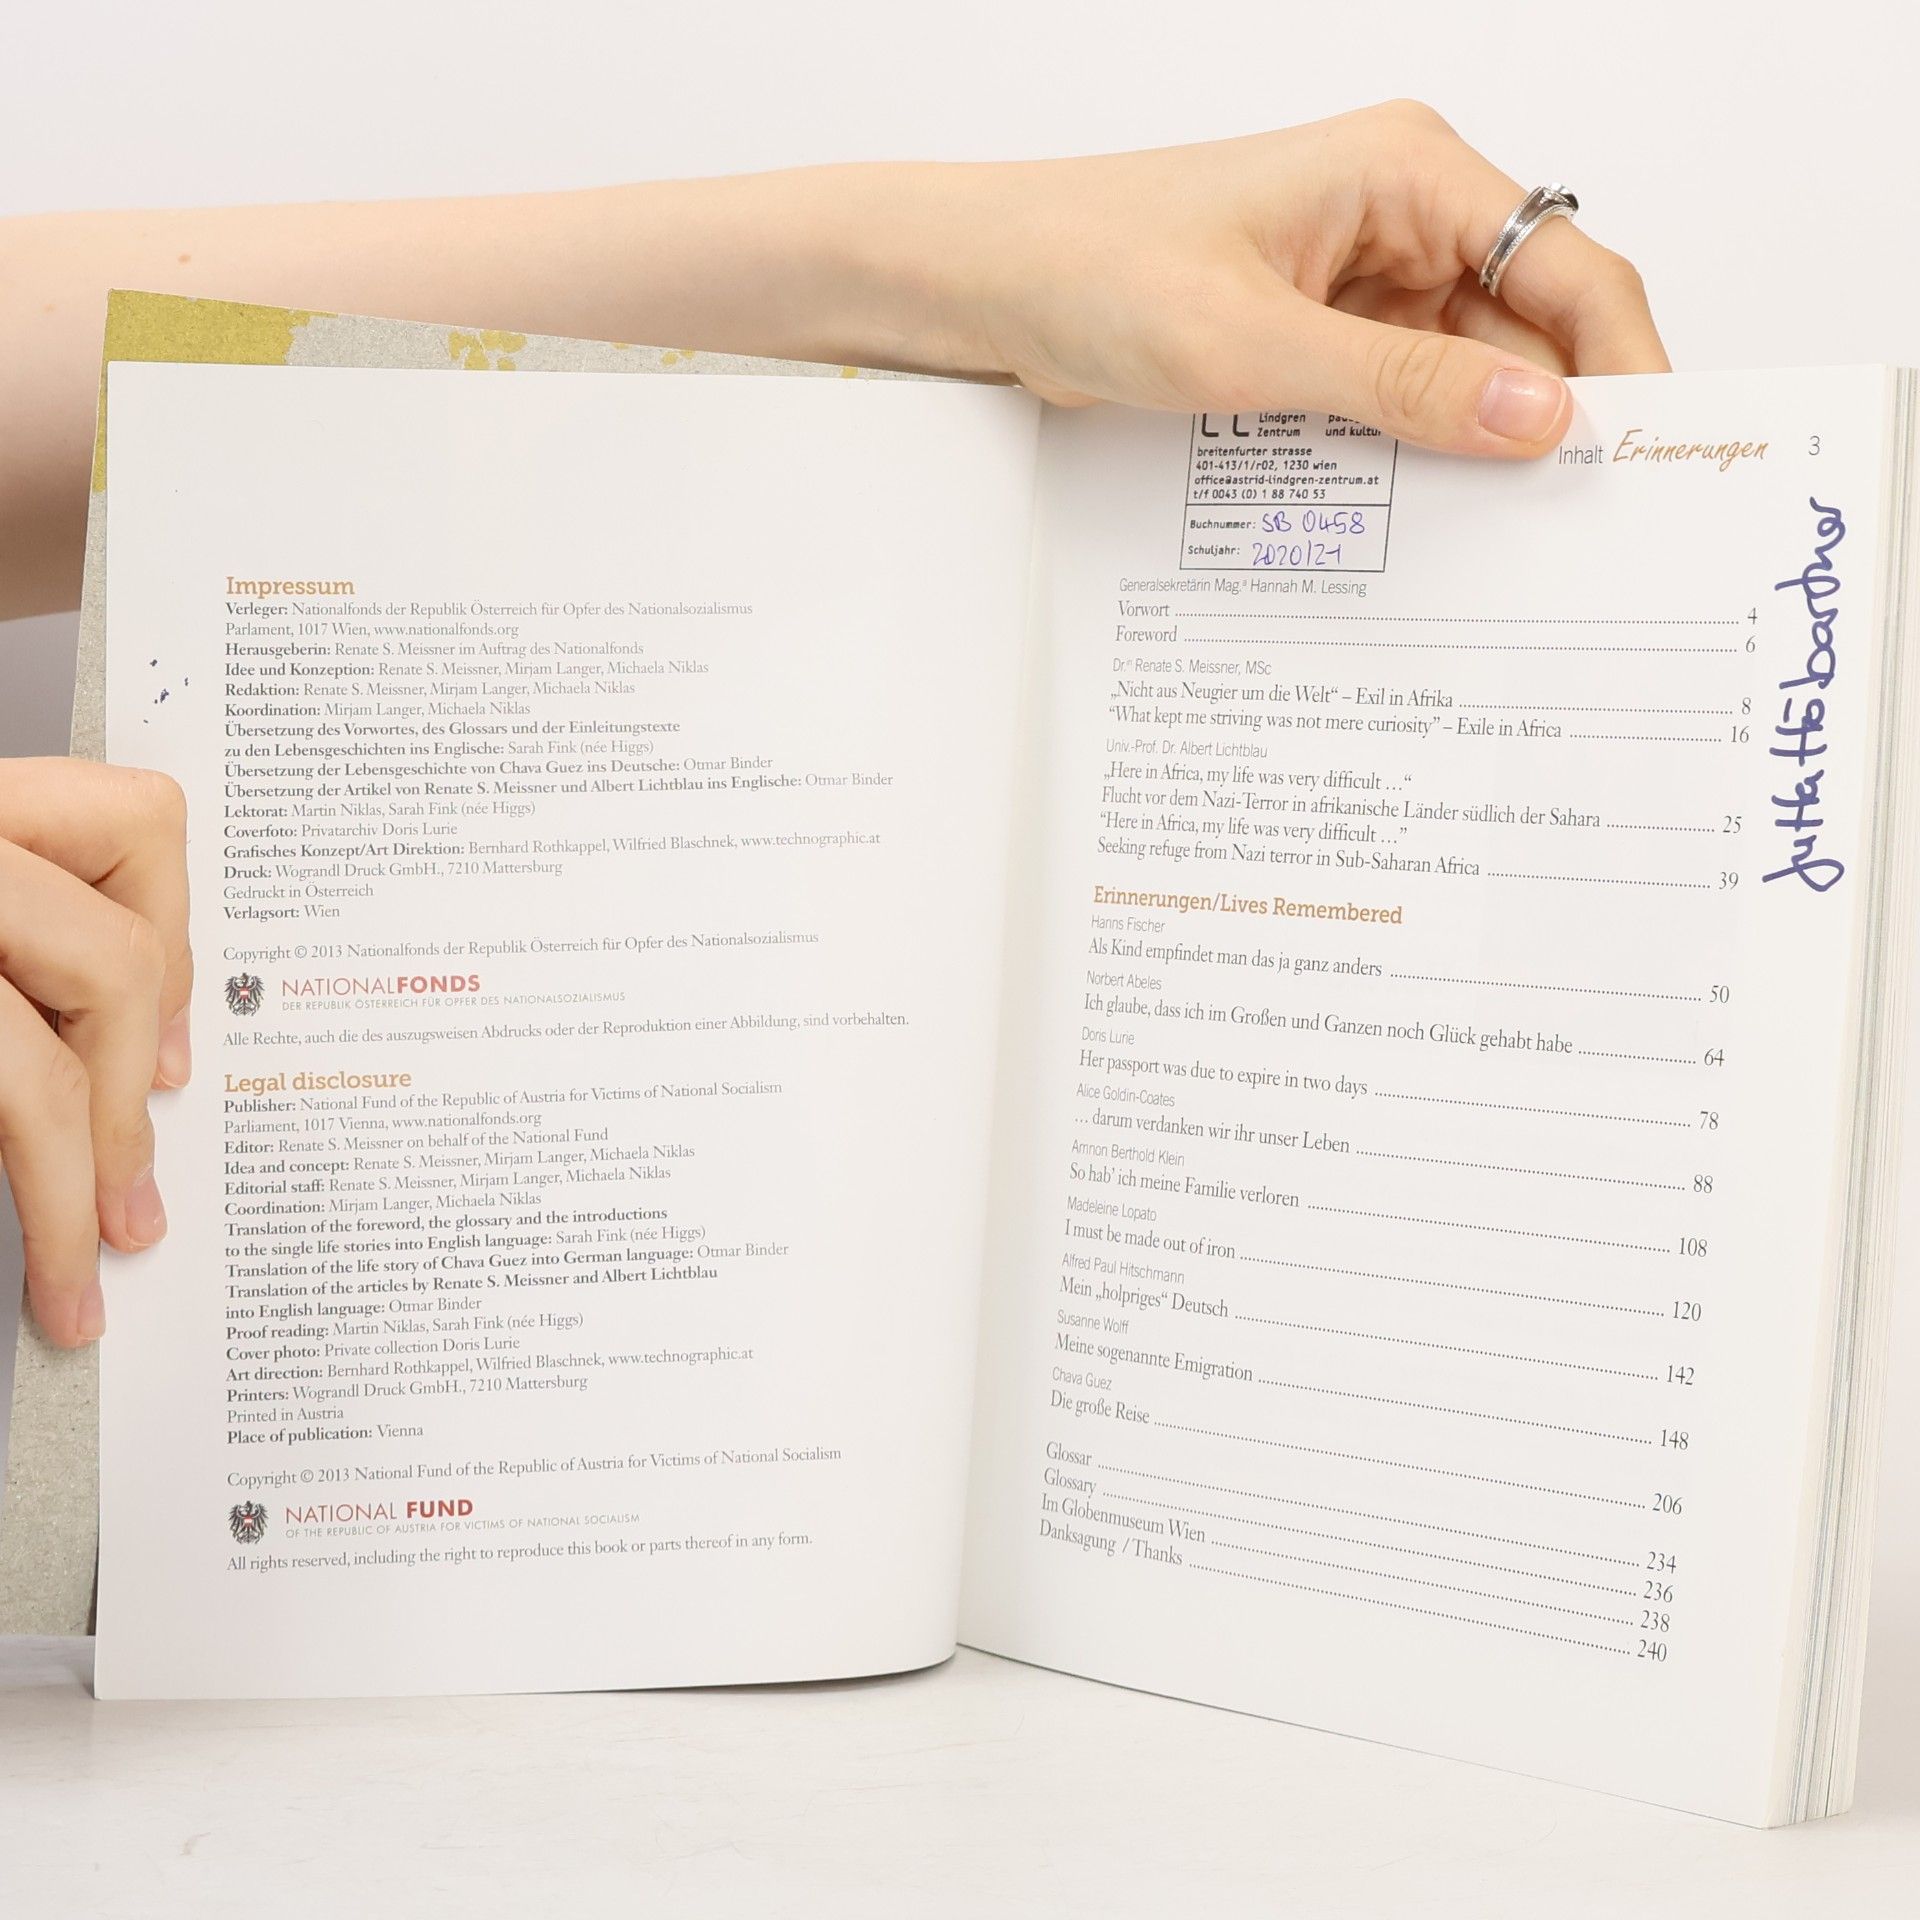 Impressum
Verleger: Nationalfonds der Republik Österreich für Opfer des Nationalsozialismus
Parlament, 1017 Wien, www.nationalfonds.org
Herausgeberin: Renate S. Meissner im Auftrag des Nationalfonds
Idee und Konzeption: Renate S. Meissner, Mirjam Langer, Michaela Niklas
Redaktion: Renate S. Meissner, Mirjam Langer, Michaela Niklas
Koordination: Mirjam Langer, Michaela Niklas
Übersetzung des Vorwortes, des Glossars und der Einleitungstexte
zu den Lebensgeschichten ins Englische: Sarah Fink (née Higgs)
Übersetzung der Lebensgeschichte von Chava Guez ins Deutsche: Otmar Binder
Übersetzung der Artikel von Renate S. Meissner und Albert Lichtblau ins Englische: Otmar Binder
Lektorat: Martin Niklas, Sarah Fink (née Higgs)
Coverfoto: Privatarchiv Doris Lurie
Grafisches Konzept/Art Direktion: Bernhard Rothkappel, Wilfried Blaschnek, www.technographic.at
Druck: Wograndl Druck GmbH., 7210 Mattersburg
Gedruckt in Österreich
Verlagsort: Wien
Copyright © 2013 Nationalfonds der Republik Österreich für Opfer des Nationalsozialismus
NATIONALFONDS
DER REPUBLIK ÖSTERREICH FÜR OPFER DES NATIONALSOZIALISMUS
Alle Rechte, auch die des auszugsweisen Abdrucks oder der Reproduktion einer Abbildung, sind vorbehalten.
Legal disclosure
Publisher: National Fund of the Republic of Austria for Victims of National Socialism
Parliament, 1017 Vienna, www.nationalfonds.org
Editor: Renate S. Meissner on behalf of the National Fund
Idea and concept: Renate S. Meissner, Mirjam Langer, Michaela Niklas
Editorial staff: Renate S. Meissner, Mirjam Langer, Michaela Niklas
Coordination: Mirjam Langer, Michaela Niklas
Translation of the foreword, the glossary and the introductions
to the single life stories into English language: Sarah Fink (née Higgs)
Translation of the life story of Chava Guez into German language: Otmar Binder
Translation of the articles by Renate S. Meissner and Albert Lichtblau
into English language: Otmar Binder
Proof reading: Martin Niklas, Sarah Fink (née Higgs)
Cover photo: Private collection Doris Lurie
Art direction: Bernhard Rothkappel, Wilfried Blaschnek, www.technographic.at
Printers: Wograndl Druck GmbH., 7210 Mattersburg
Printed in Austria
Place of publication: Vienna
Copyright © 2013 National Fund of the Republic of Austria for Victims of National Socialism
NATIONAL FUND
OF THE REPUBLIC OF AUSTRIA FOR VICTIMS OF NATIONAL SOCIALISM
All rights reserved, including the right to reproduce this book or parts thereof in any form.
Inhalt Erinnerungen 3
Lindgren
Zentrum und kultur
breitenfurter strasse
401-413/1/r02, 1230 wien
office@astrid-lindgren-zentrum.at
t/f 0043 (0) 1 88 740 53
Buchnummer: SB 0458
Schuljahr: 2020/21
Generalsekretärin Mag.ª Hannah M. Lessing
Vorwort 4
Foreword 6
Dr.ⁱⁿ Renate S. Meissner, MSc
„Nicht aus Neugier um die Welt“ – Exil in Afrika 8
“What kept me striving was not mere curiosity” – Exile in Africa 16
Univ.-Prof. Dr. Albert Lichtblau
„Here in Africa, my life was very difficult …“
Flucht vor dem Nazi-Terror in afrikanische Länder südlich der Sahara 25
“Here in Africa, my life was very difficult …”
Seeking refuge from Nazi terror in Sub-Saharan Africa 39
Erinnerungen/Lives Remembered
Hanns Fischer
Als Kind empfindet man das ja ganz anders 50
Norbert Abeles
Ich glaube, dass ich im Großen und Ganzen noch Glück gehabt habe 64
Doris Lurie
Her passport was due to expire in two days 78
Alice Goldin-Coates
… darum verdanken wir ihr unser Leben 88
Amnon Berthold Klein
So hab’ ich meine Familie verloren 108
Madeleine Lopato
I must be made out of iron 120
Alfred Paul Hitschmann
Mein „holpriges“ Deutsch 142
Susanne Wolff
Meine sogenannte Emigration 148
Chava Guez
Die große Reise 206
Glossar 234
Glossary 236
Im Globenmuseum Wien 238
Danksagung / Thanks 240
Jutta